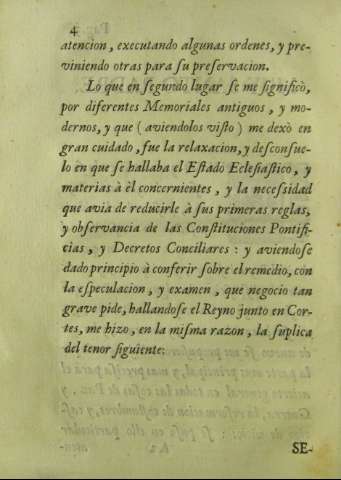 4
atencion, executando algunas ordenes, y pre-
viniendo otras para su preservacion.
Lo que en segundo lugar se me significò,
por diferentes Memoriales antiguos, y mo-
dernos, y que (aviendolos visto) me dexò en
gran cuidado, fue la relaxacion, y desconsue-
lo en que se hallaba el Estado Eclesiastico, y
materias à èl concernientes, y la necessidad
que avia de reducirle à sus primeras reglas,
y observancia de las Constituciones Pontifi-
cias, y Decretos Conciliares: y aviendose
dado principio à conferir sobre el remedio, con
la especulacion, y examen, que negocio tan
grave pide, hallandose el Reyno junto en Cor-
tes, me hizo, en la misma razon, la suplica
del tenor siguiente:
SE-